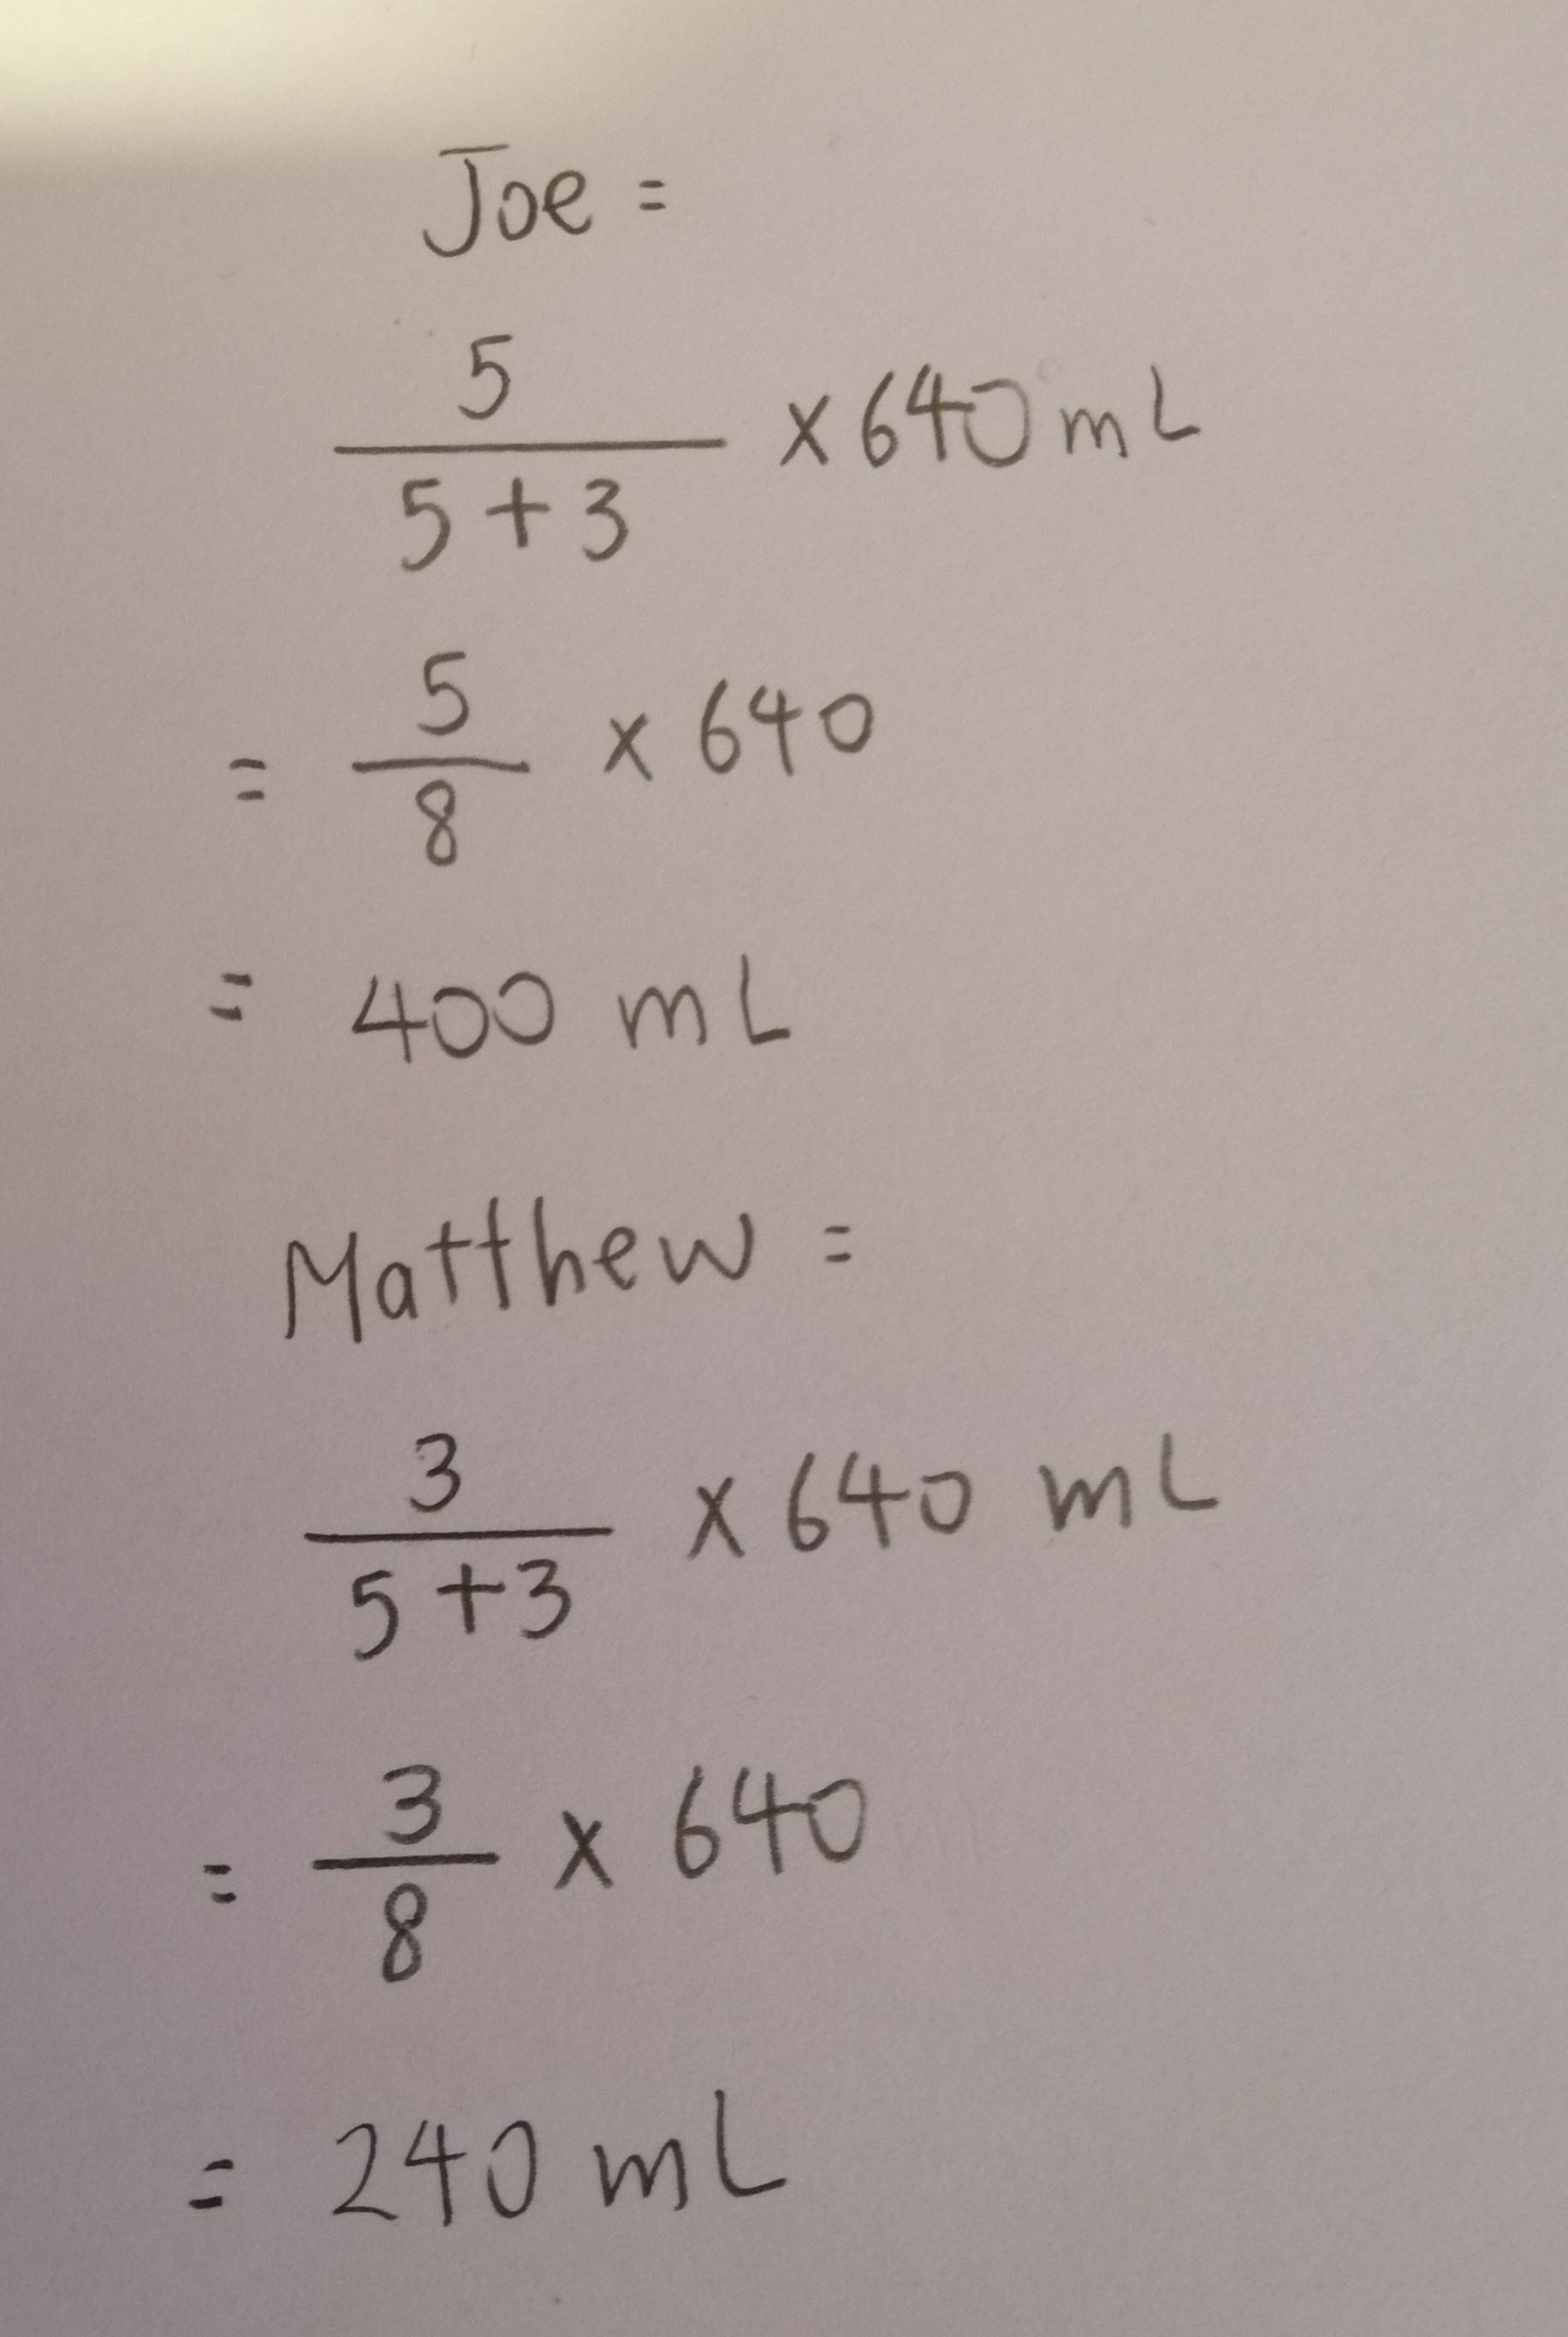 Joe =
5
5 + 3
× 640 mL
= 5/8 × 640
= 400 mL
Matthew =
3
5 + 3
× 640 mL
= 3/8 × 640
= 240 mL